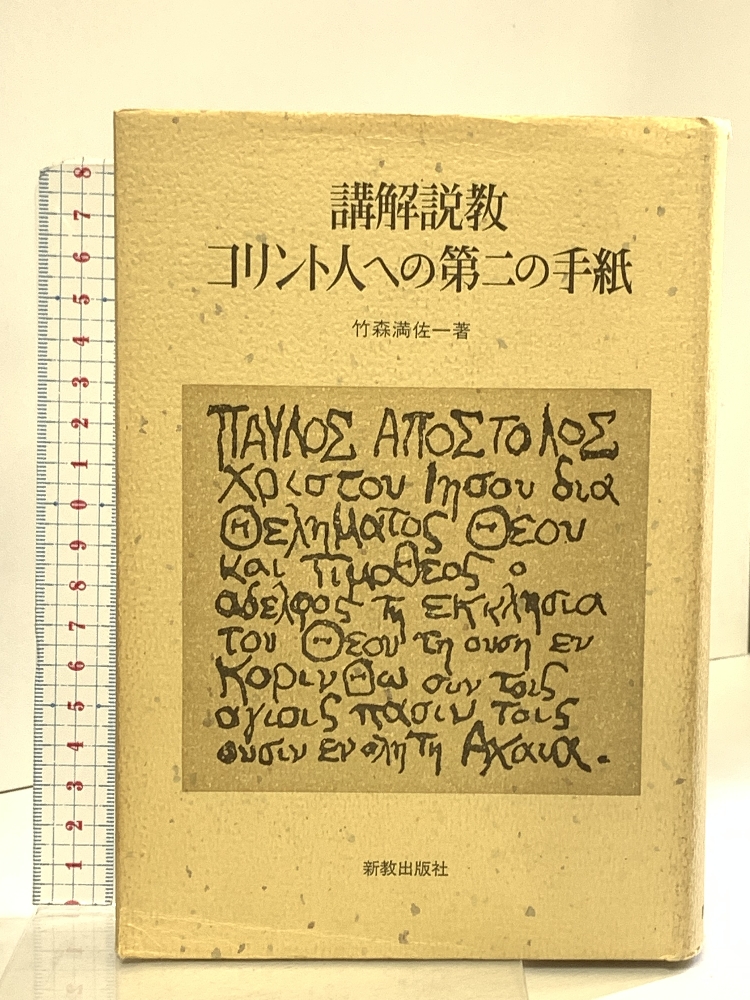 講解説教
コリント人への第二の手紙
竹森満佐一著
ΠΑΥΛΟΣ ΑΠΟΣΤΟΛΟΣ
Χριστου Ιησου δια
Θεληματος Θεου
και Τιμοθεος ο
αδελφος τη εκκλησια
του Θεου τη ουση εν
Κορινθω συν τοις
αγιοις πασιν τοις
ουσιν εν ολη τη Αχαια.
新教出版社
8
7
6
5
4
3
2
1
0
9
8
7
6
5
4
3
2
1